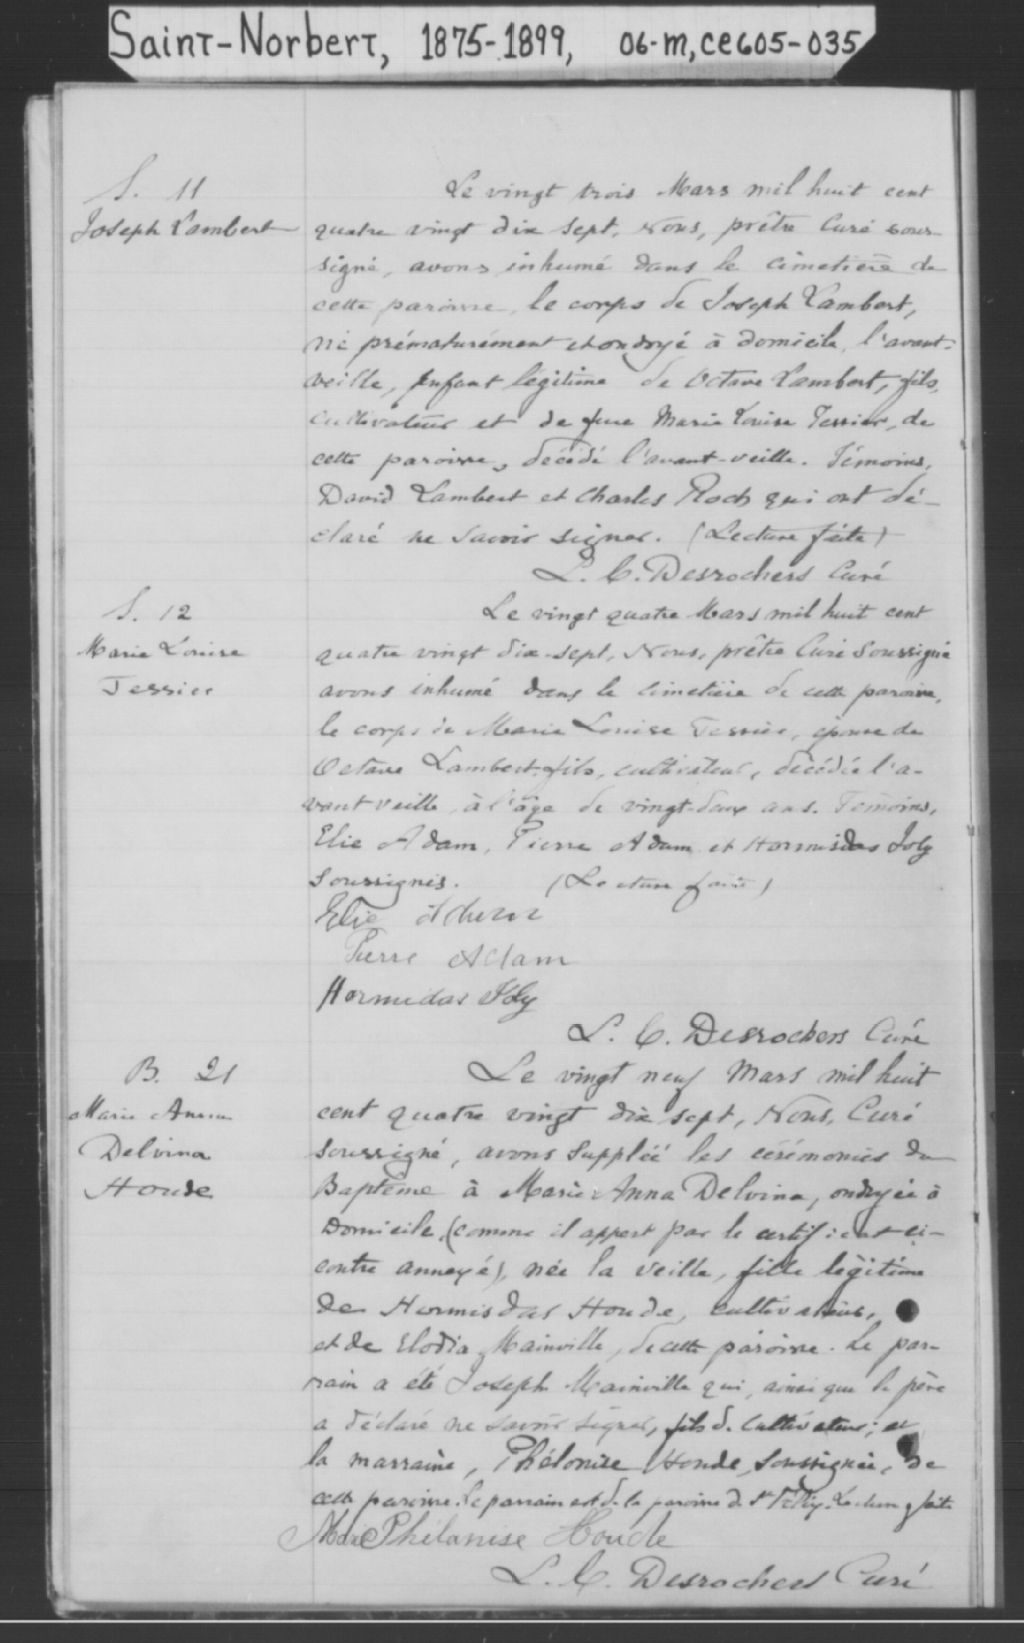 Saint-Norbert, 1875-1899, 06-M,CE605-035
S. 11
Joseph Lambert
Le vingt trois Mars mil huit cent
quatre vingt dix sept, Nous, prêtre Curé sous-
signé, avons inhumé dans le cimetière de
cette paroisse, le corps de Joseph Lambert,
né prématurément et ondoyé à domicile, l'avant-
veille, enfant légitime de Octave Lambert, fils,
cultivateur et de feue Marie Louise Tessier, de
cette paroisse, décédé l'avant-veille. Témoins,
David Lambert et Charles Roch qui ont dé-
claré ne savoir signer. (Lecture faite)
L. C. Desrochers Curé
S. 12
Marie Louise
Tessier
Le vingt quatre Mars mil huit cent
quatre vingt dix-sept, Nous, prêtre Curé Soussigné
avons inhumé dans le cimetière de cette paroisse,
le corps de Marie Louise Tessier, épouse de
Octave Lambert, fils, cultivateur, décédée l'a-
vant veille, à l'âge de vingt-deux ans. Témoins,
Elie Adam, Pierre Adam et Hormisdas Joly
soussignés. (Lecture faite)
Elie Adam
Pierre Adam
Hormidas Joly
L. C. Desrochers Curé
B. 21
Marie Anna
Delvina
Houde
Le vingt neuf Mars mil huit
cent quatre vingt dix sept, Nous, Curé
soussigné, avons suppléé les cérémonies du
Baptême à Marie Anna Delvina, ondoyée à
Domicile, (comme il appert par le certificat ci-
contre annexé), née la veille, fille légitime
de Hormisdas Houde, cultivateur,
et de Elodia Mainville, de cette paroisse. Le par-
rain a été Joseph Mainville qui, ainsi que le père
a déclaré ne savoir signer, fils d. cultivateur; et
la marraine, Phélonise Houde, soussignée, de
cette paroisse. Le parrain est de la paroisse de St Lecture faite
Marie Phélanise Houde
L. C. Desrochers Curé